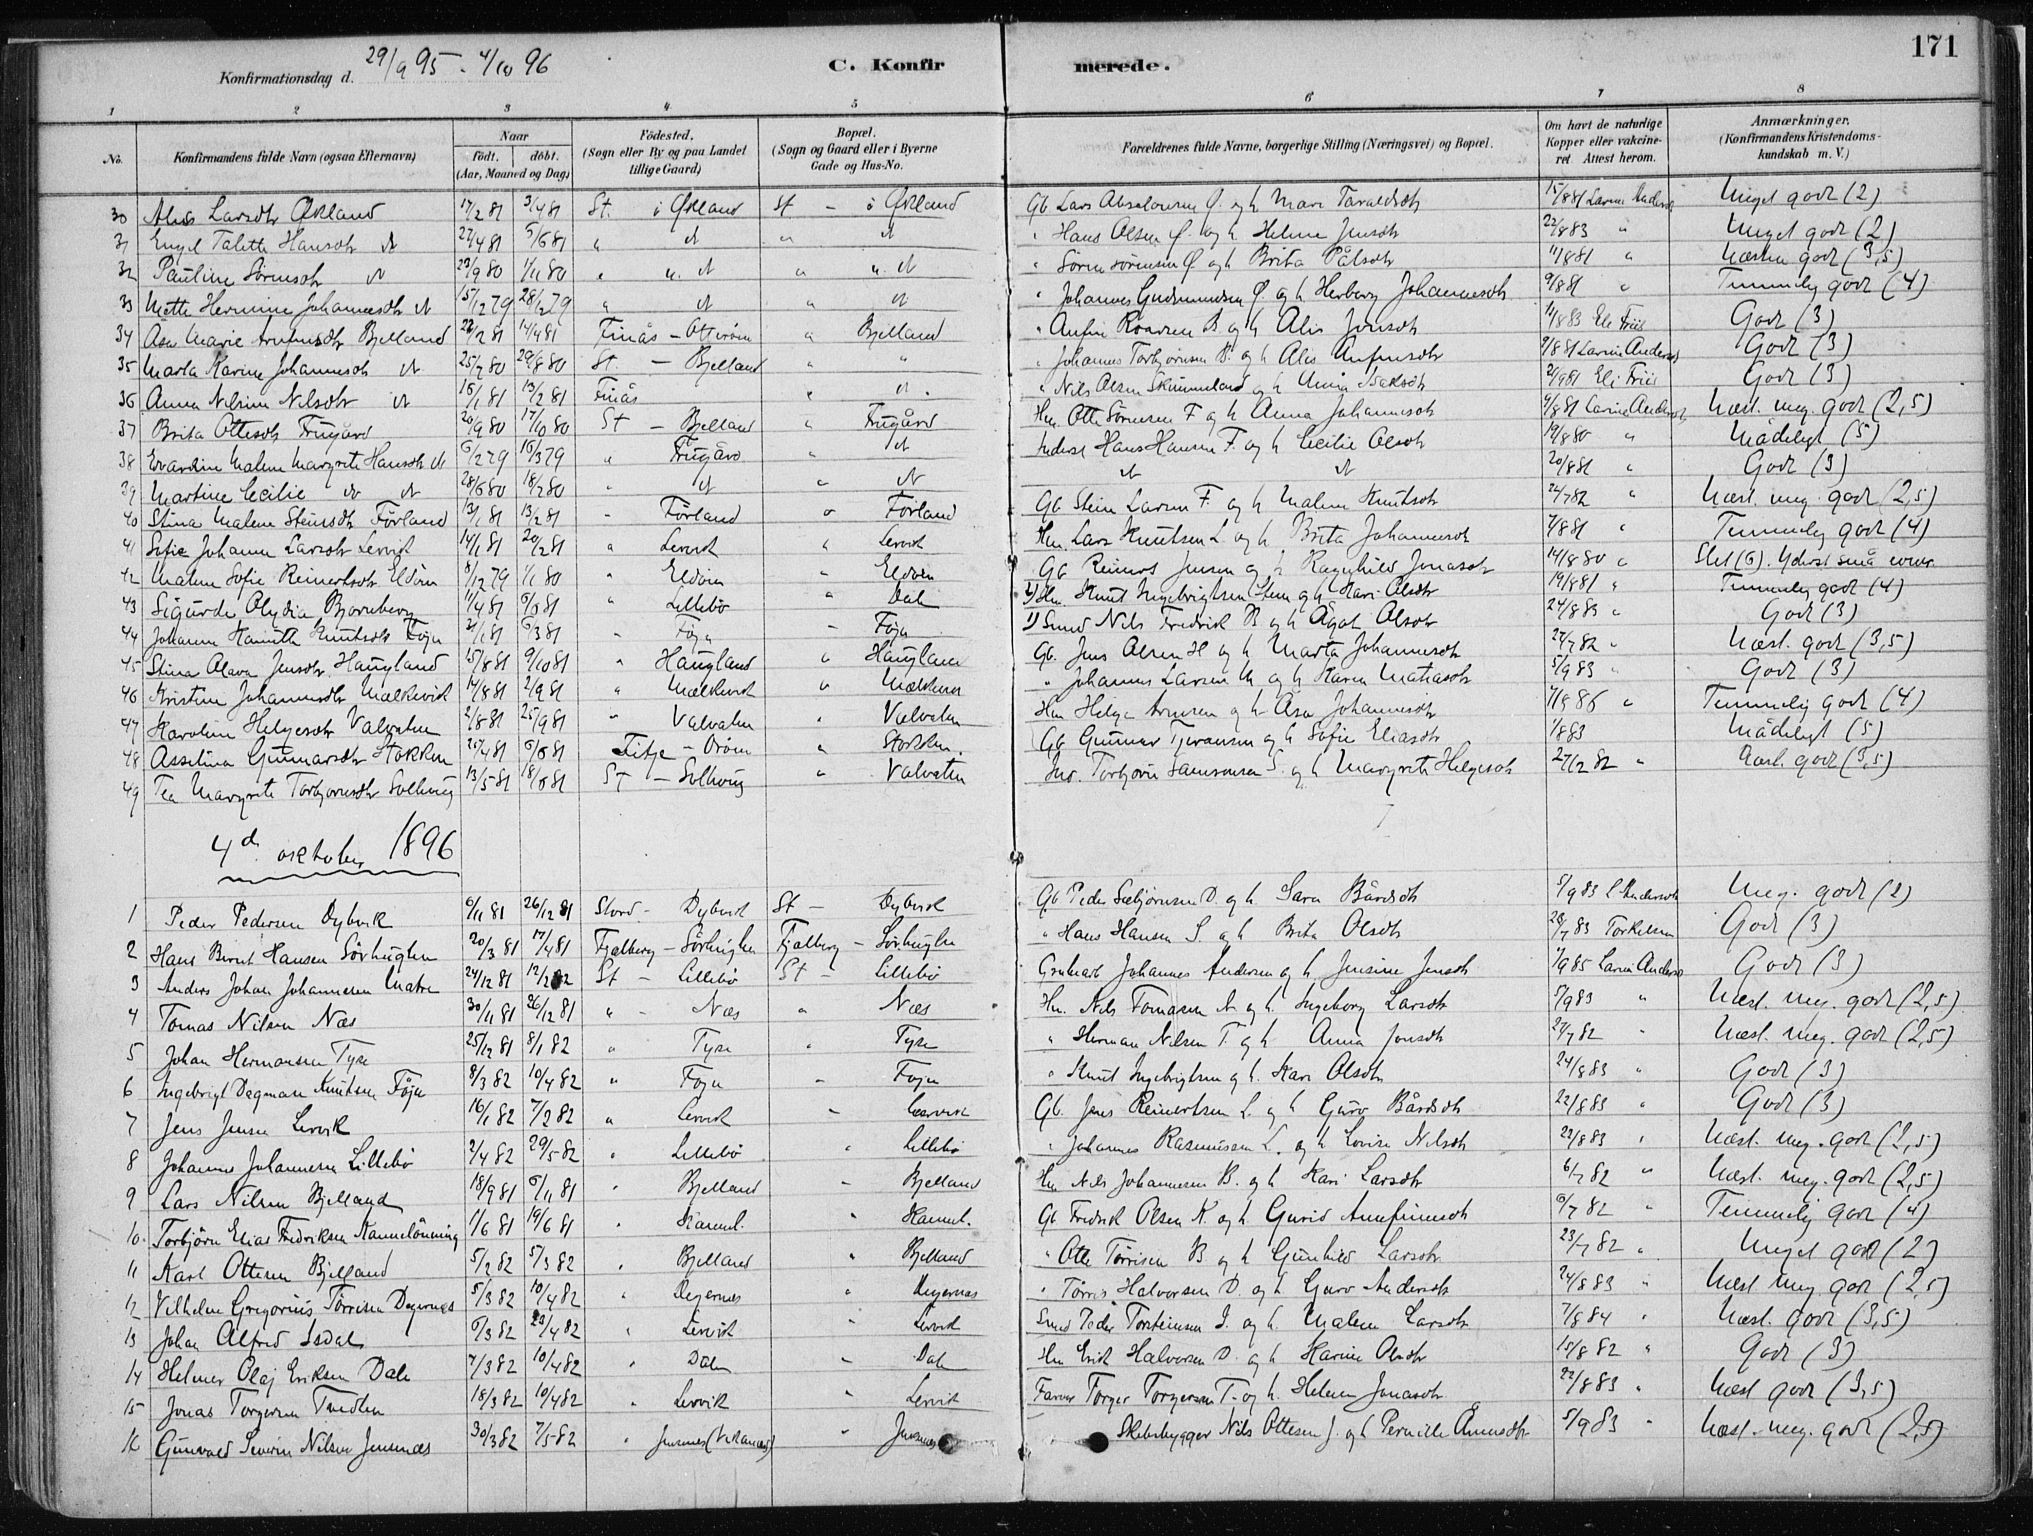 171
Konfirmationsdag d. 29/9 95 - 4/10 96
C. Konfirmerede.
1 2 3 4 5 6 7 8
No. Konfirmandens fulde Navn (ogsaa Efternavn) Naar født. døbt. (Aar, Maaned og Dag) Födested. (Sogn eller By og paa Landet tillige Gaard) Bopæl. (Sogn og Gaard eller i Byerne Gade og Hus-No. Forældrenes fulde Navne, borgerlige Stilling (Næringsvei) og Bopæl. Om havt de naturlige Kopper eller vakcineret Attest herom. Anmærkninger. (Konfirmandens Kristendomskundskab m. V.)
30 Larsdtr Økland 17/2 81 3/4 81 St. i Økland St - i Økland Gb Lars Absalonsen Ø. og h Mari Taraldsdtr 15/8 81 Meget godt (2)
31 Engel Talette Hansdtr dt 27/4 81 5/6 81 " dt " dt " Hans Olsen Ø. og h Helene Jensdtr 22/8 83 " Meget godt (2)
32 Pauline Sörensdtr dt 23/9 80 1/11 80 " dt " dt " Sören Sörensen Ø. og h Brita Pålsdtr 11/8 81 " Næsten godt (3,5)
33 Mette Hermine Johannesdtr dt 15/2 79 28/2 79 " dt " dt " Johannes Gudmundsen Ø. og h Herborg Johannesdtr 9/8 81 " Temmelig godt (4)
34 Åsa Marie Bjelland 22/2 81 14/4 81 Finås - " Bjelland " B og h Alis Jonsdtr 11/8 83 Eli Friis Godt (3)
35 Marta Karine Johannesdtr dt 25/7 80 29/8 80 St. - Bjelland " " " Johannes Torbjörnsen B. og h Alis 9/8 81 Larsine Andersdtr Godt (3)
36 Anna Nilsine Nilsdtr dt 16/1 81 13/2 81 Finås " dt. " Nils Olsen og h Anna Isaksdtr 21/9 81 Eli Friis Godt (3)
37 Brita Ottesdtr Frugård 20/9 80 17/10 80 St - Bjelland " Frugård Hm. Otte Sörensen F. og h Anna Johannesdtr 9/8 81 Næst. meg. godt (2,5)
38 Malene Margrete Hansdtr dt 6/2 79 16/3 79 " Frugård " dt Hans Hansen F. og h Cecilie Olsdtr 19/8 80 " Mådeligt (5)
39 Martine Cecilie do dt 28/6 80 18/7 80 " dt " dt dt dt 20/8 81 " Godt (3)
40 Stina Malene Steinsdtr Förland 13/1 81 13/2 81 " Förland " Förland Gb. Stein Larsen F. og h Malene Knutsdtr 24/7 82 " Næst. meg. godt (2,5)
41 Sofie Johanne Larsdtr Lervik 14/1 81 20/2 81 " Lervik " Lervik Hm. Lars Knutsen L. og h. Brita Johannesdtr 7/8 81 " Temmelig godt (4)
42 Malene Sofie Reinertsdtr Eldöen 8/12 79 1/1 80 " Eldöen " Eldöen Gb Reinert Jensen og h Ragnhild Jonasdtr 14/8 80 " Slet (6). Yderst små evner
43 Sigurda Olydia Bjorneberg 11/4 81 6/6 81 " Lillebö " Dale Hm. Knut Ingebrigtsen og h Kari Olsdtr 19/8 81 " Temmelig godt (4)
44 Johanne Knutsdtr Föyn 2/1 81 6/3 81 " Föyn " Föyn Smed Nils Fredrik B og h Ågot Olsdtr 24/8 83 " Godt (3)
45 Stina Olava Jensdtr Haugland 15/8 81 9/10 81 " Haugland " Haugland Gb. Jens Olsen H og h Marta Johannesdtr 27/7 82 " Næst. godt (3,5)
46 Kristine Johannesdtr Mælkevik 14/8 81 2/9 81 " Mælkevik " Mælkevik " Johannes Larsen M og h Karen Matiasdtr 5/9 83 " Godt (3)
47 Karoline Helgesdtr Valvatne 2/8 81 25/9 81 " Valvatn " Valvatn Hm Helge og h Åsa Johannesdtr 7/8 86 " Temmelig godt (4)
48 Asselina Gunnarsdtr Stokken 25/4 81 6/6 81 Fitje - " Stokken. Gb Gunnar og h Sofie Eliasdtr 1/8 83 Mådeligt (5)
49 Tea Margrete Torbjörnsdtr Solheug 13/5 81 18/6 81 St - Solheug " Valvatn Torbjörn Samsonsen S. og h Margrete Helgesdtr 27/2 82 " Næst. godt (3,5)
4de oktober 1896
1 Peder Pedersen Dybvik 6/11 81 26/12 81 Stord - Dybvik St - Dybvik Gb Peder D. og h Sara Bårdsdtr 5/9 83 L Andersdtr Meg. godt (2)
2 Hans Bernt Hansen Sörhuglen 20/3 81 17/4 81 Fjælberg - Sörhuglen Fjælberg - Sörhuglen " Hans Hansen S. og h Brita Olsdtr 28/7 83 Torkelsen Godt (3)
3 Anders Johan Johannesen Matre 24/12 81 12/2 82 St - Lillebö St - Lillebö Grubearb Johannes Andersen og h Jensine Jensdtr 1/9 85 Godt (3)
4 Tomas Nilsen Næs 30/11 81 26/12 81 " - Næs " Næs Hm. Nils Tomasen N og h. Ingeborg Larsdtr 5/9 83 " Næst. meg. godt (2,5)
5 Johan Hermansen Tyse 25/12 81 8/1 82 " Tyse " Tyse " Herman Nilsen T. og h Anna Jonsdtr 27/7 82 " Næst. meg. godt (2,5)
6 Ingebrigt Dagman Knutsen Föyn 8/3 82 10/4 82 " Föyn " Föyn " Knut Ingebrigtsen og h. Kari Olsdtr 24/8 83 " Godt (3)
7 Jens Jensen Lervik 16/1 82 7/2 82 " Lervik " Lervik Gb. Jens Reinertsen L. og h Guro Bårdsdtr 22/8 83 " Godt (3)
8 Johannes Johannesen Lillebö 2/4 82 29/5 82 " Lillebö " Lillebö " Johannes Rasmussen L. og h Lovise Nilsdtr 22/8 83 " Næst. meg. godt (2,5)
9 Lars Nilsen Bjelland 18/9 81 6/11 81 " Bjelland " Bjelland Hm Nils Johannesen B. og h Kari Larsdtr 6/7 82 " Næst. meg. godt (2,5)
10. Torbjörn Elias Fredriksen Kannelönning 1/6 81 19/6 81 " Kannel. " Kannel. Gb Fredrik Olsen K. og h. Gurid 6/7 82 " Temmelig godt (4)
11 Karl Ottesen Bjelland 5/2 82 5/3 82 " Bjelland " Bjelland " Otte Törrisen B og h Gunhild Larsdtr 23/7 82 " Meget godt (2)
12 Vilhelm Gregorius Törrisen Degernæs 5/3 82 10/4 82 " Degernæs " Degernæs " Törres Halvorsen D. og h Guro Andersdtr 24/8 83 " Næst meg godt (2,5)
13 Johan Alfred Isdal 6/3 82 23/4 82 " Lervik " Lervik Smed Peder Torsteinsen I. og h. Malene Larsdtr 7/8 84 " Næst. godt (3,5)
14 Helmer Olaj Eriksen Dale 7/3 82 10/4 82 " Dale " Dale Hm Erik Halvorsen D. og h Karine Olsdtr 15/8 82 " Godt (3)
15 Jonas Torgersen Tveiten 18/3 82 10/4 82 " Lervik " Lervik Farver Torger Torgersen T. og h. Helene Jonasdtr 22/8 83 " Næst godt (3,5)
16 Gunvald Severin Nilsen Jensenæs 30/3 82 7/5 82 " Jensenæs " Jensenæs Skibsbygger Nils Ottesen J. og h Pernille 5/9 83 " Næst. meg. godt (2,5)